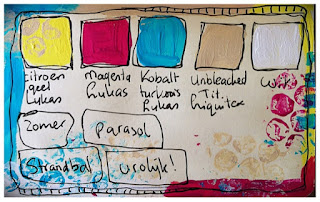 citroen
geel
Lukas
magenta
Lukas
Kobalt
turkoois
Lukas
Unbleached
Tit.
Liquitex
Wit
Zomer
parasol
Strandbal
vrolijk!